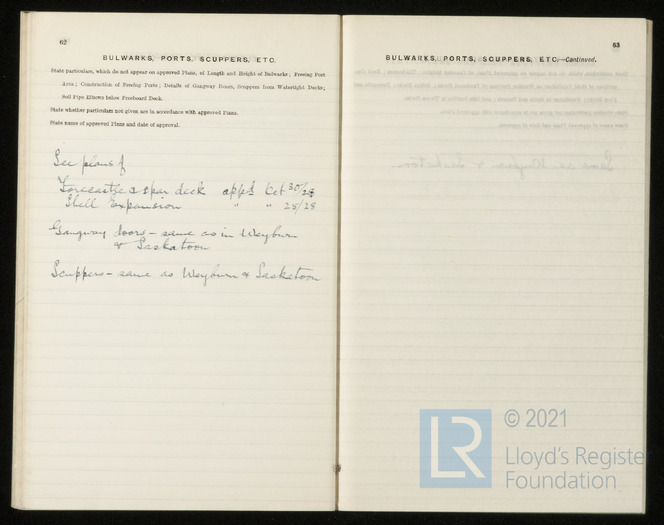 62
BULWARKS, PORTS, SCUPPERS, ETC.
State particulars, which do not appear on approved Plans, of Length and Height of Bulwarks; Freeing Port
Area; Construction of Freeing Ports; Details of Gangway Doors, Scuppers from Watertight Decks;
Soil Pipe Elbows below Freeboard Deck.
State whether particulars not given are in accordance with approved Plans.
State name of approved Plans and date of approval.
See plans of
Forecastle & spar deck appd Oct 30/28
Shell Expansion " " 25/28
Gangway doors - same as in Weyburn
& Saskatoon
Scuppers - same as Weyburn & Saskatoon
63
BULWARKS, PORTS, SCUPPERS, ETC.—Continued.
LR
© 2021
Lloyd's Register
Foundation